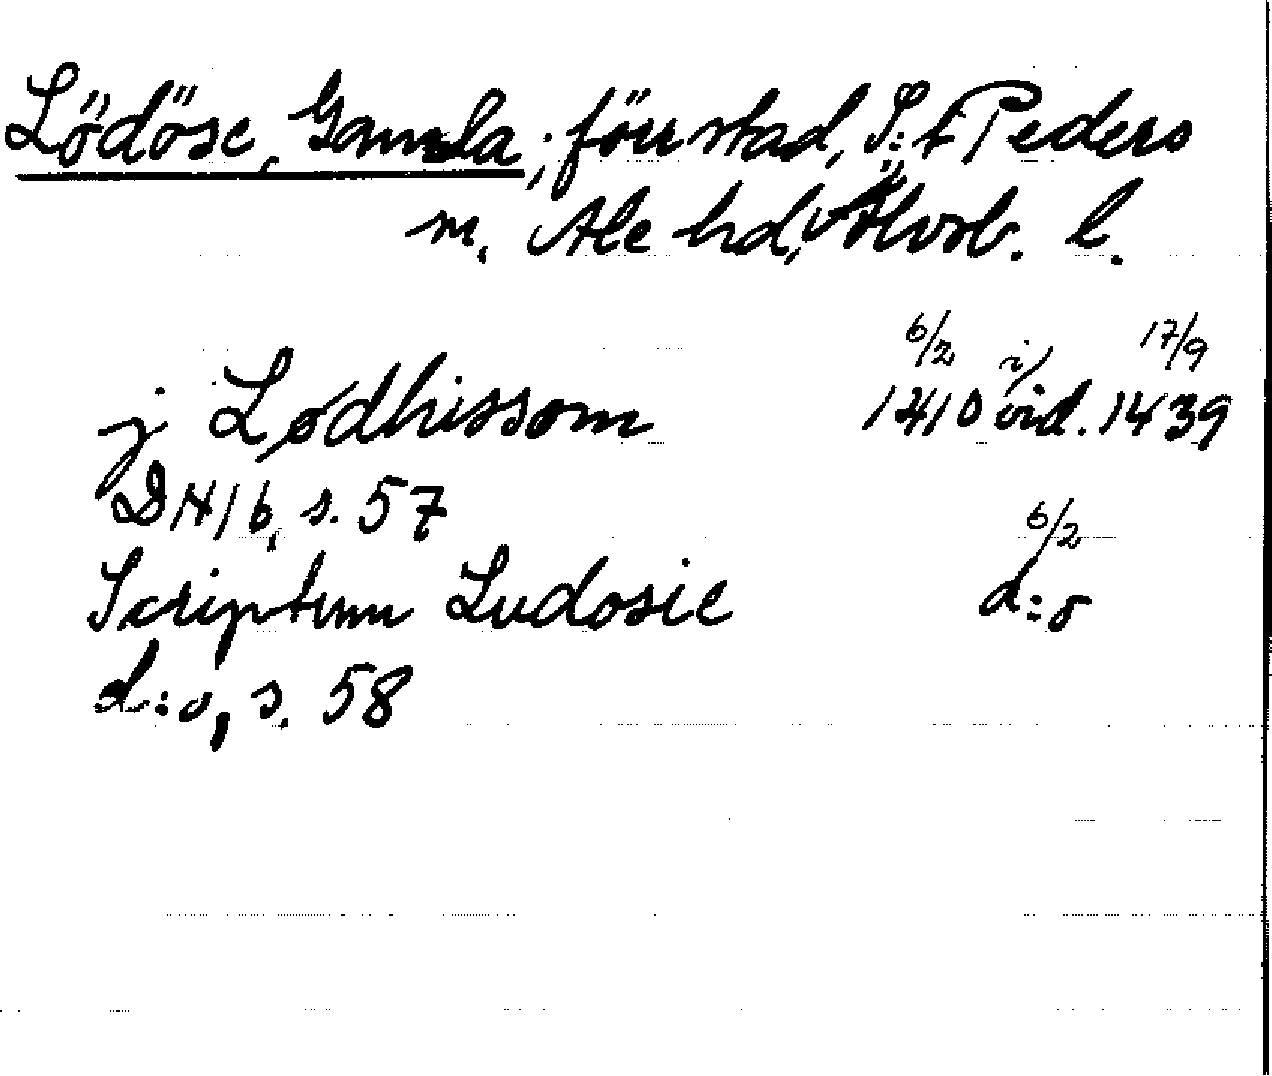 Lödöse, Gamla; förr stad, S:t Peders
m. Ale hd, Älvsb. l.
6/2 i 17/9
j Lødhissom 1410 vid. 1439
DN 16, s. 57
6/2
Scriptum Ludosie d:o
d:o, s. 58